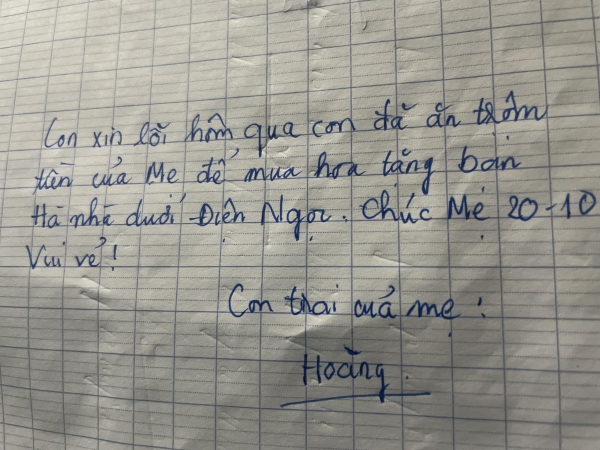 Con xin lỗi hôm qua con đã ăn trộm
tiền của Mẹ để mua hoa tặng bạn
Hà nhà dưới Điện Ngọc. Chúc Mẹ 20-10
Vui vẻ!
Con trai của mẹ:
Hoàng.